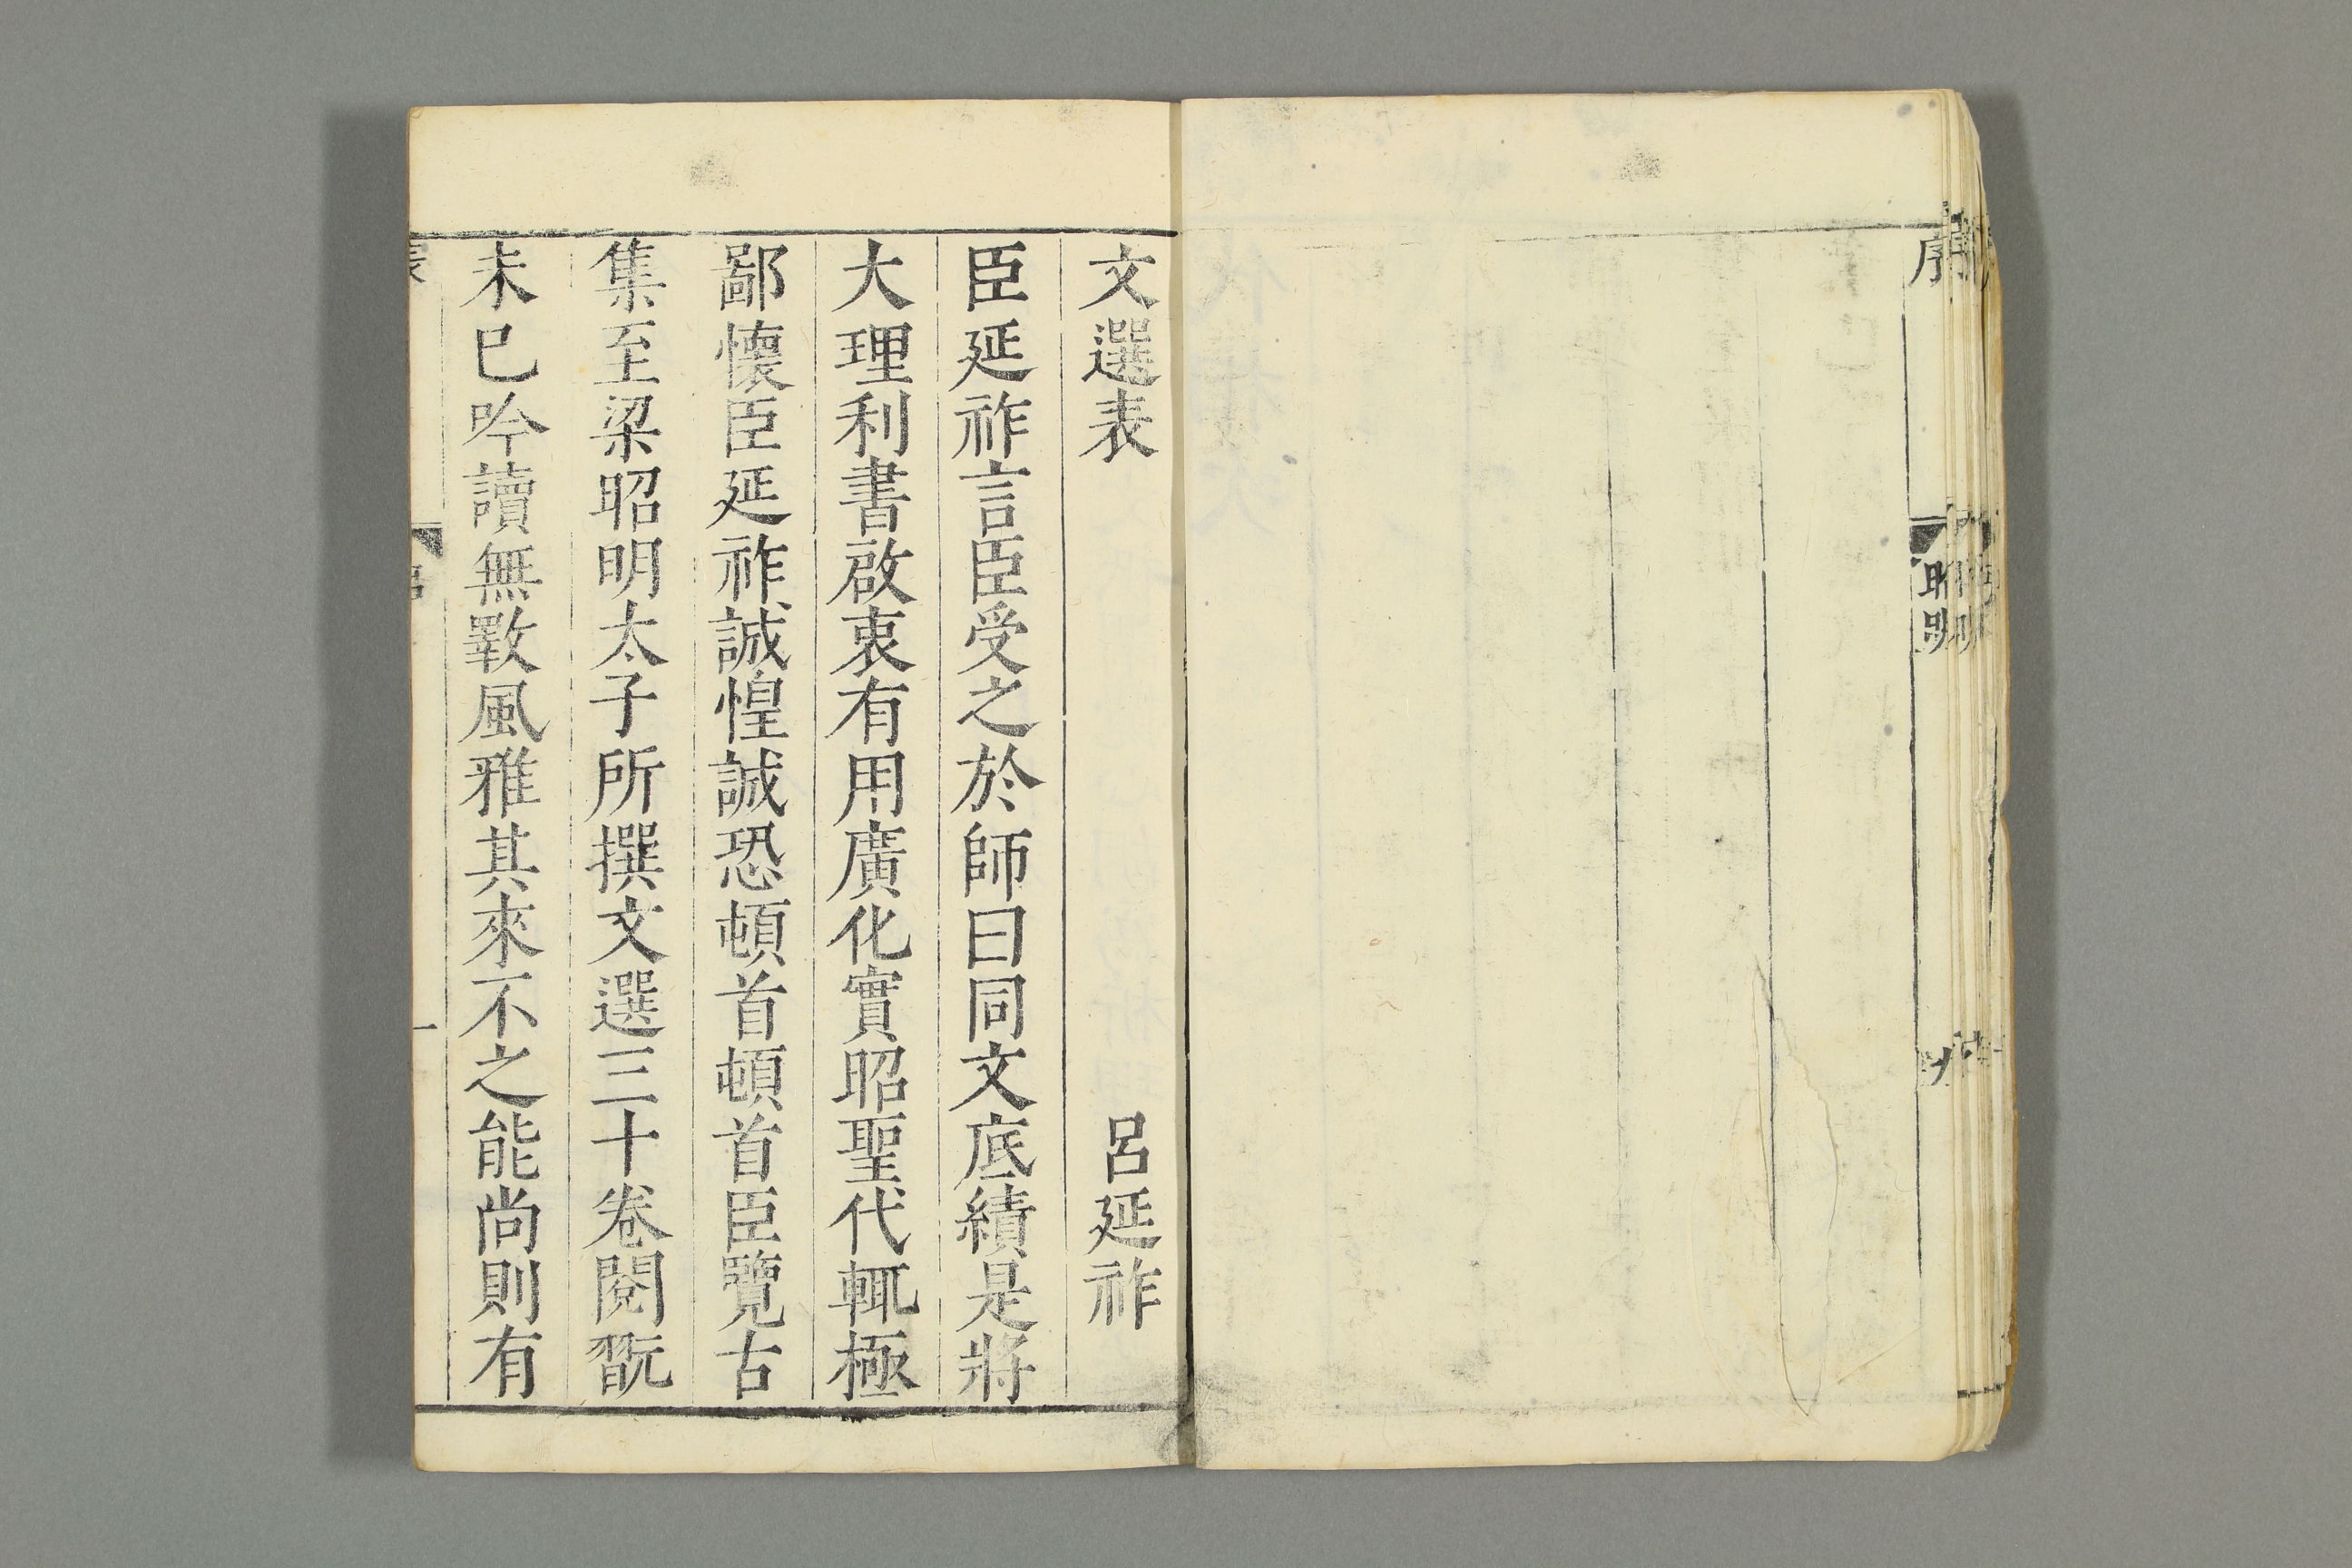 文選表 呂延祚
臣延祚言臣受之於師曰同文底績是將
大理利書啟衷有用廣化實昭聖代輒極
鄙懷臣延祚誠惶誠恐頓首頓首臣覽古
集至梁昭明太子所撰文選三十卷閱翫
未巳吟讀無斁風雅其來不之能尚則有
序